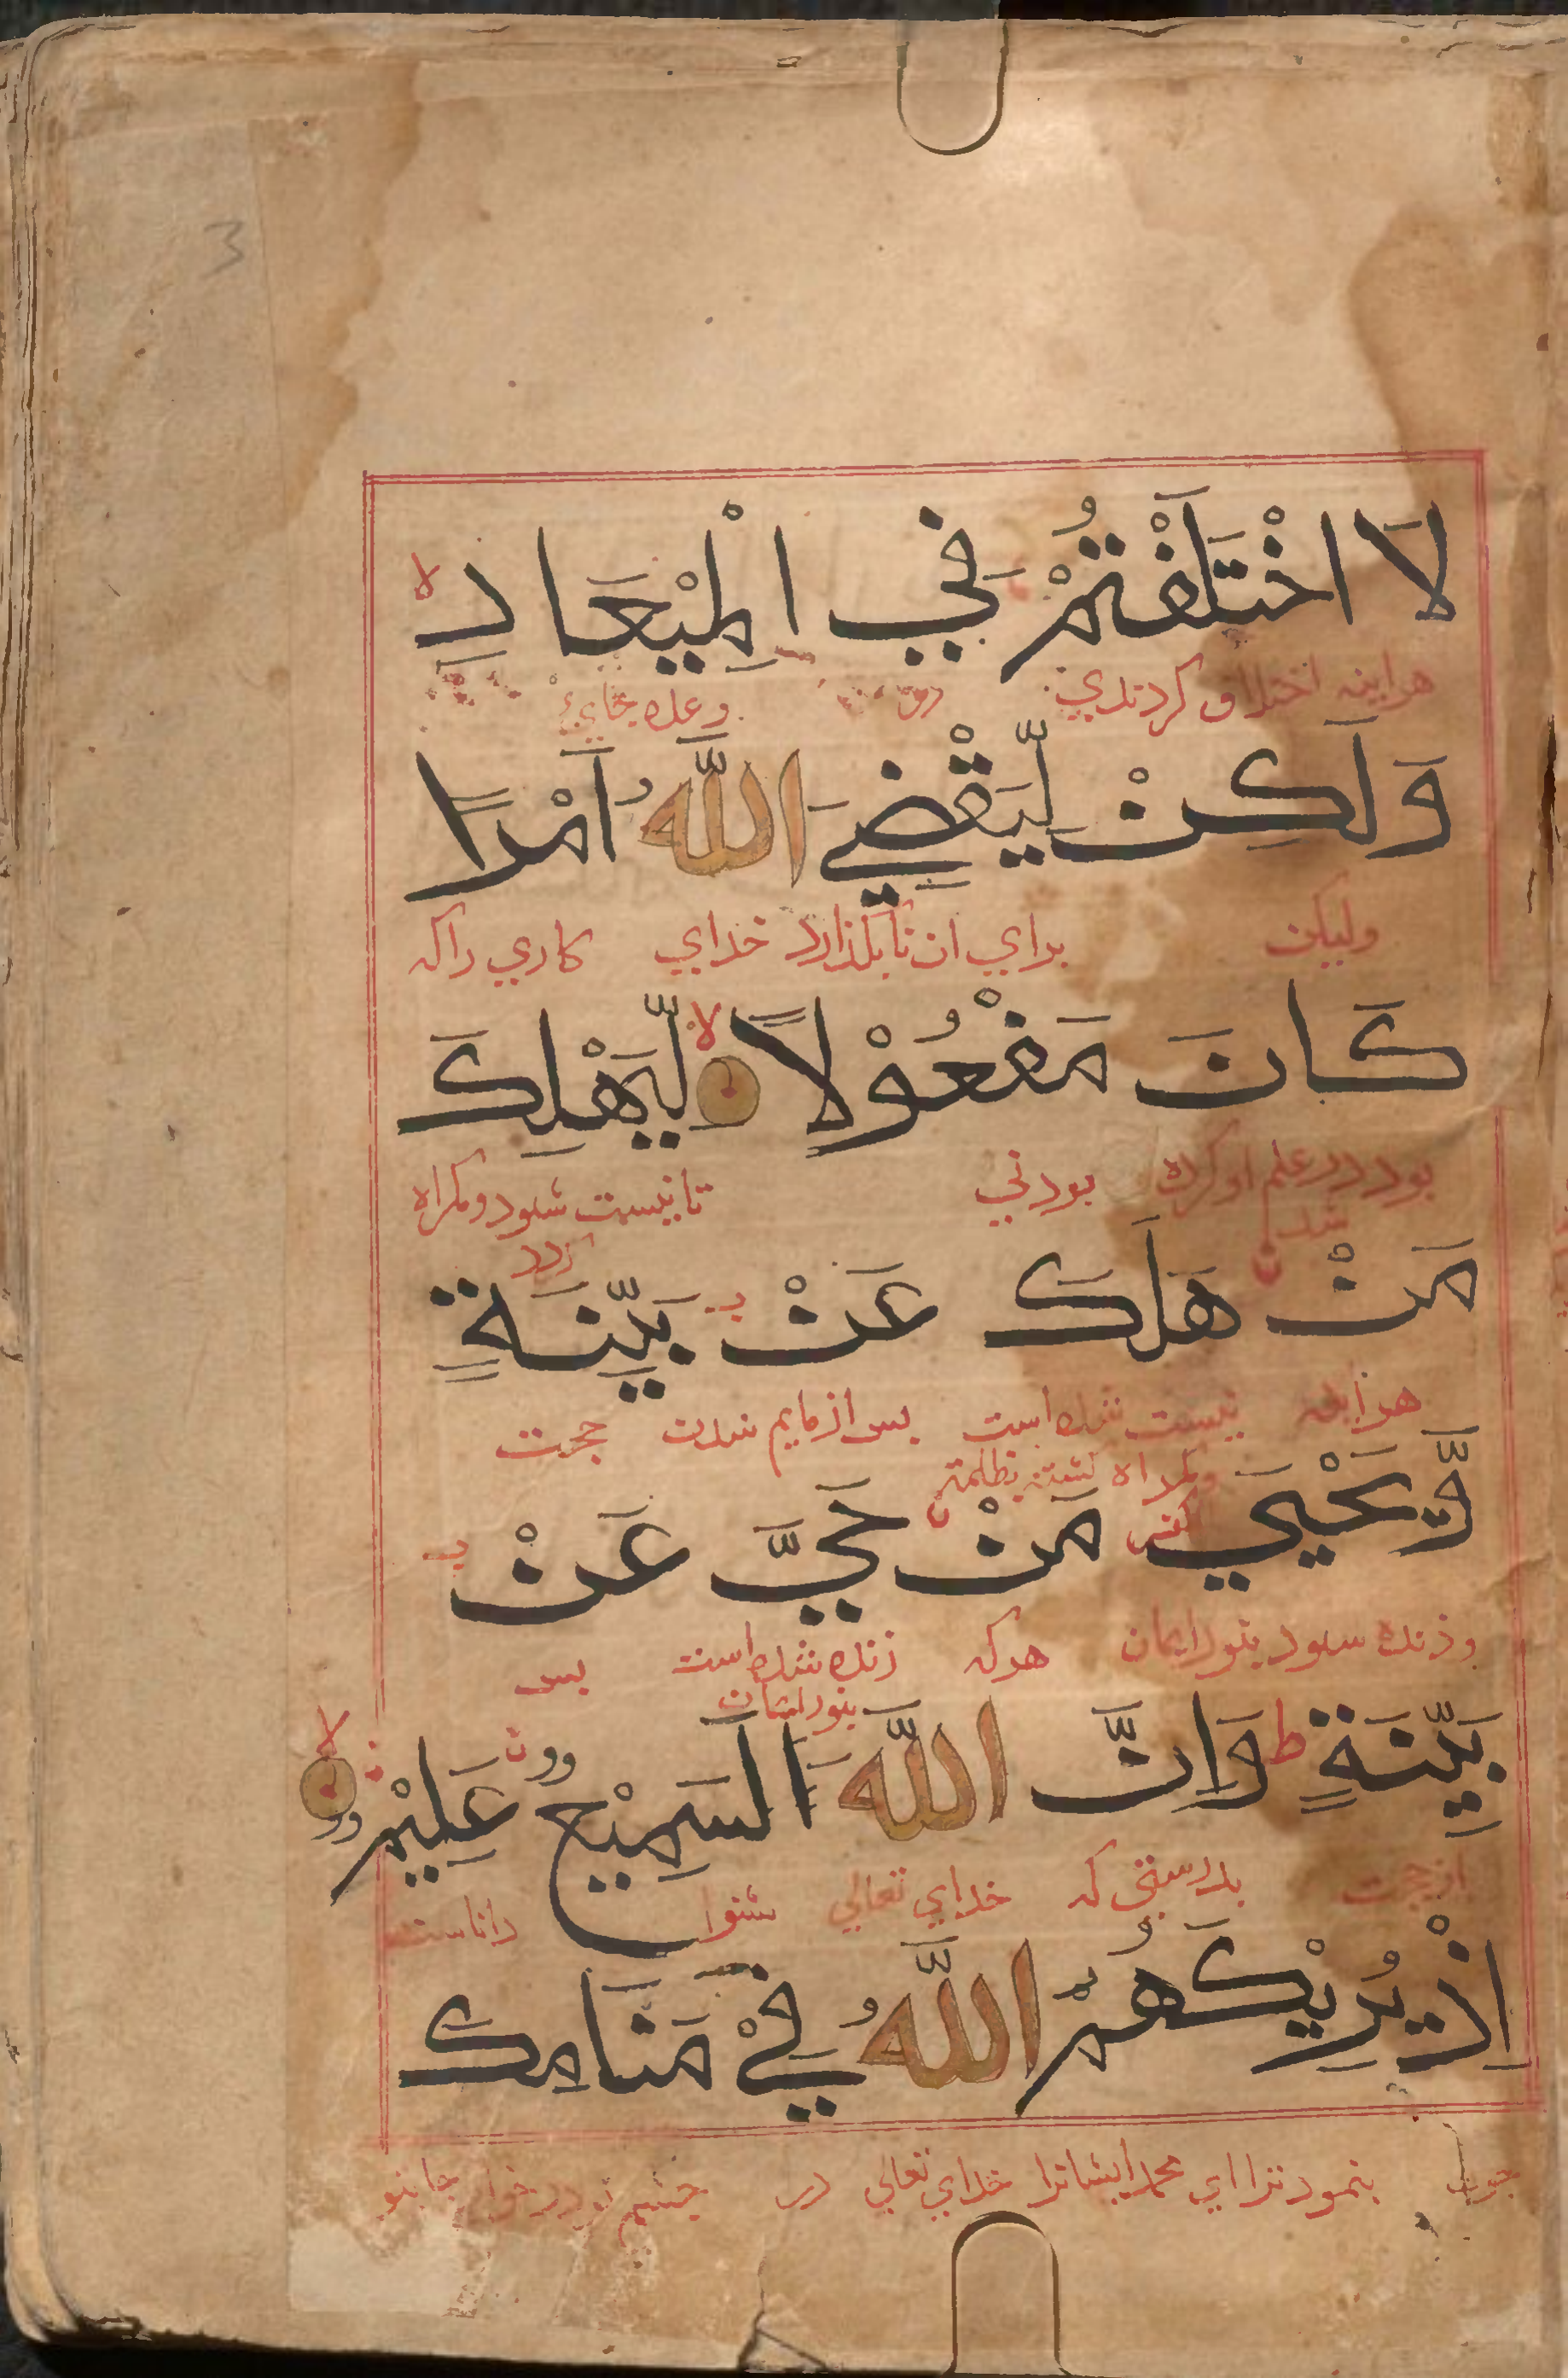 3
لَا اخْتَلَفْتُمْ فِي الْمِيْعَادِ لا
هراینه اختلاف کردندي در وعده جاي
وَلَكِنْ لِّيَقْضِيَ اللّٰهُ اَمْرًا
ولیکن براي ان تا بگذارد خداي کاري راکه
كَانَ مَفْعُوْلًا لا لِّيَهْلِكَ
بود در علم او کرده بودني تا نیست شود و گمراه
شدن گردد
مَنْ هَلَكَ عَنْ بَيِّنَةٍ
نیست شده است بس از قایم شدن حجت
وگمراه گشته بظلمت
کفر
وَّيَحْيَي مَنْ حَيَّ عَنْ
وزنده شود بنور ایمان هرکه زنده شده است بس
بنور ایمان
بَيِّنَةٍ ط وَاِنَّ اللّٰهَ السَمِيْع عَلِيْم لا
از حجت بدرستي که خداي تعالي شنوا داناست
اِذْ يُرِيْكَهُمُ اللّٰهُ فِيْ مَنَامِكَ
چون بنمود ترا اي محمد ایشانرا خداي تعالي در چشم تو در خواب